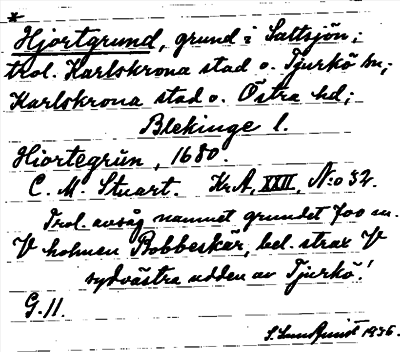 *
Hjortgrund, grund i Saltsjön;
trol. Karlskrona stad o. Tjurkö sn;
Karlskrona stad o. Östra hd;
Blekinge l.
Hiortegrün, 1680.
C. M. Stuart. KrA, XXII, N:o 32.
Trol. avsåg namnet grundet 700 m.
V holmen Bobbeskär, bel. strax V
sydvästra udden av Tjurkö.!
G.11.
S. Lundquist 1936.